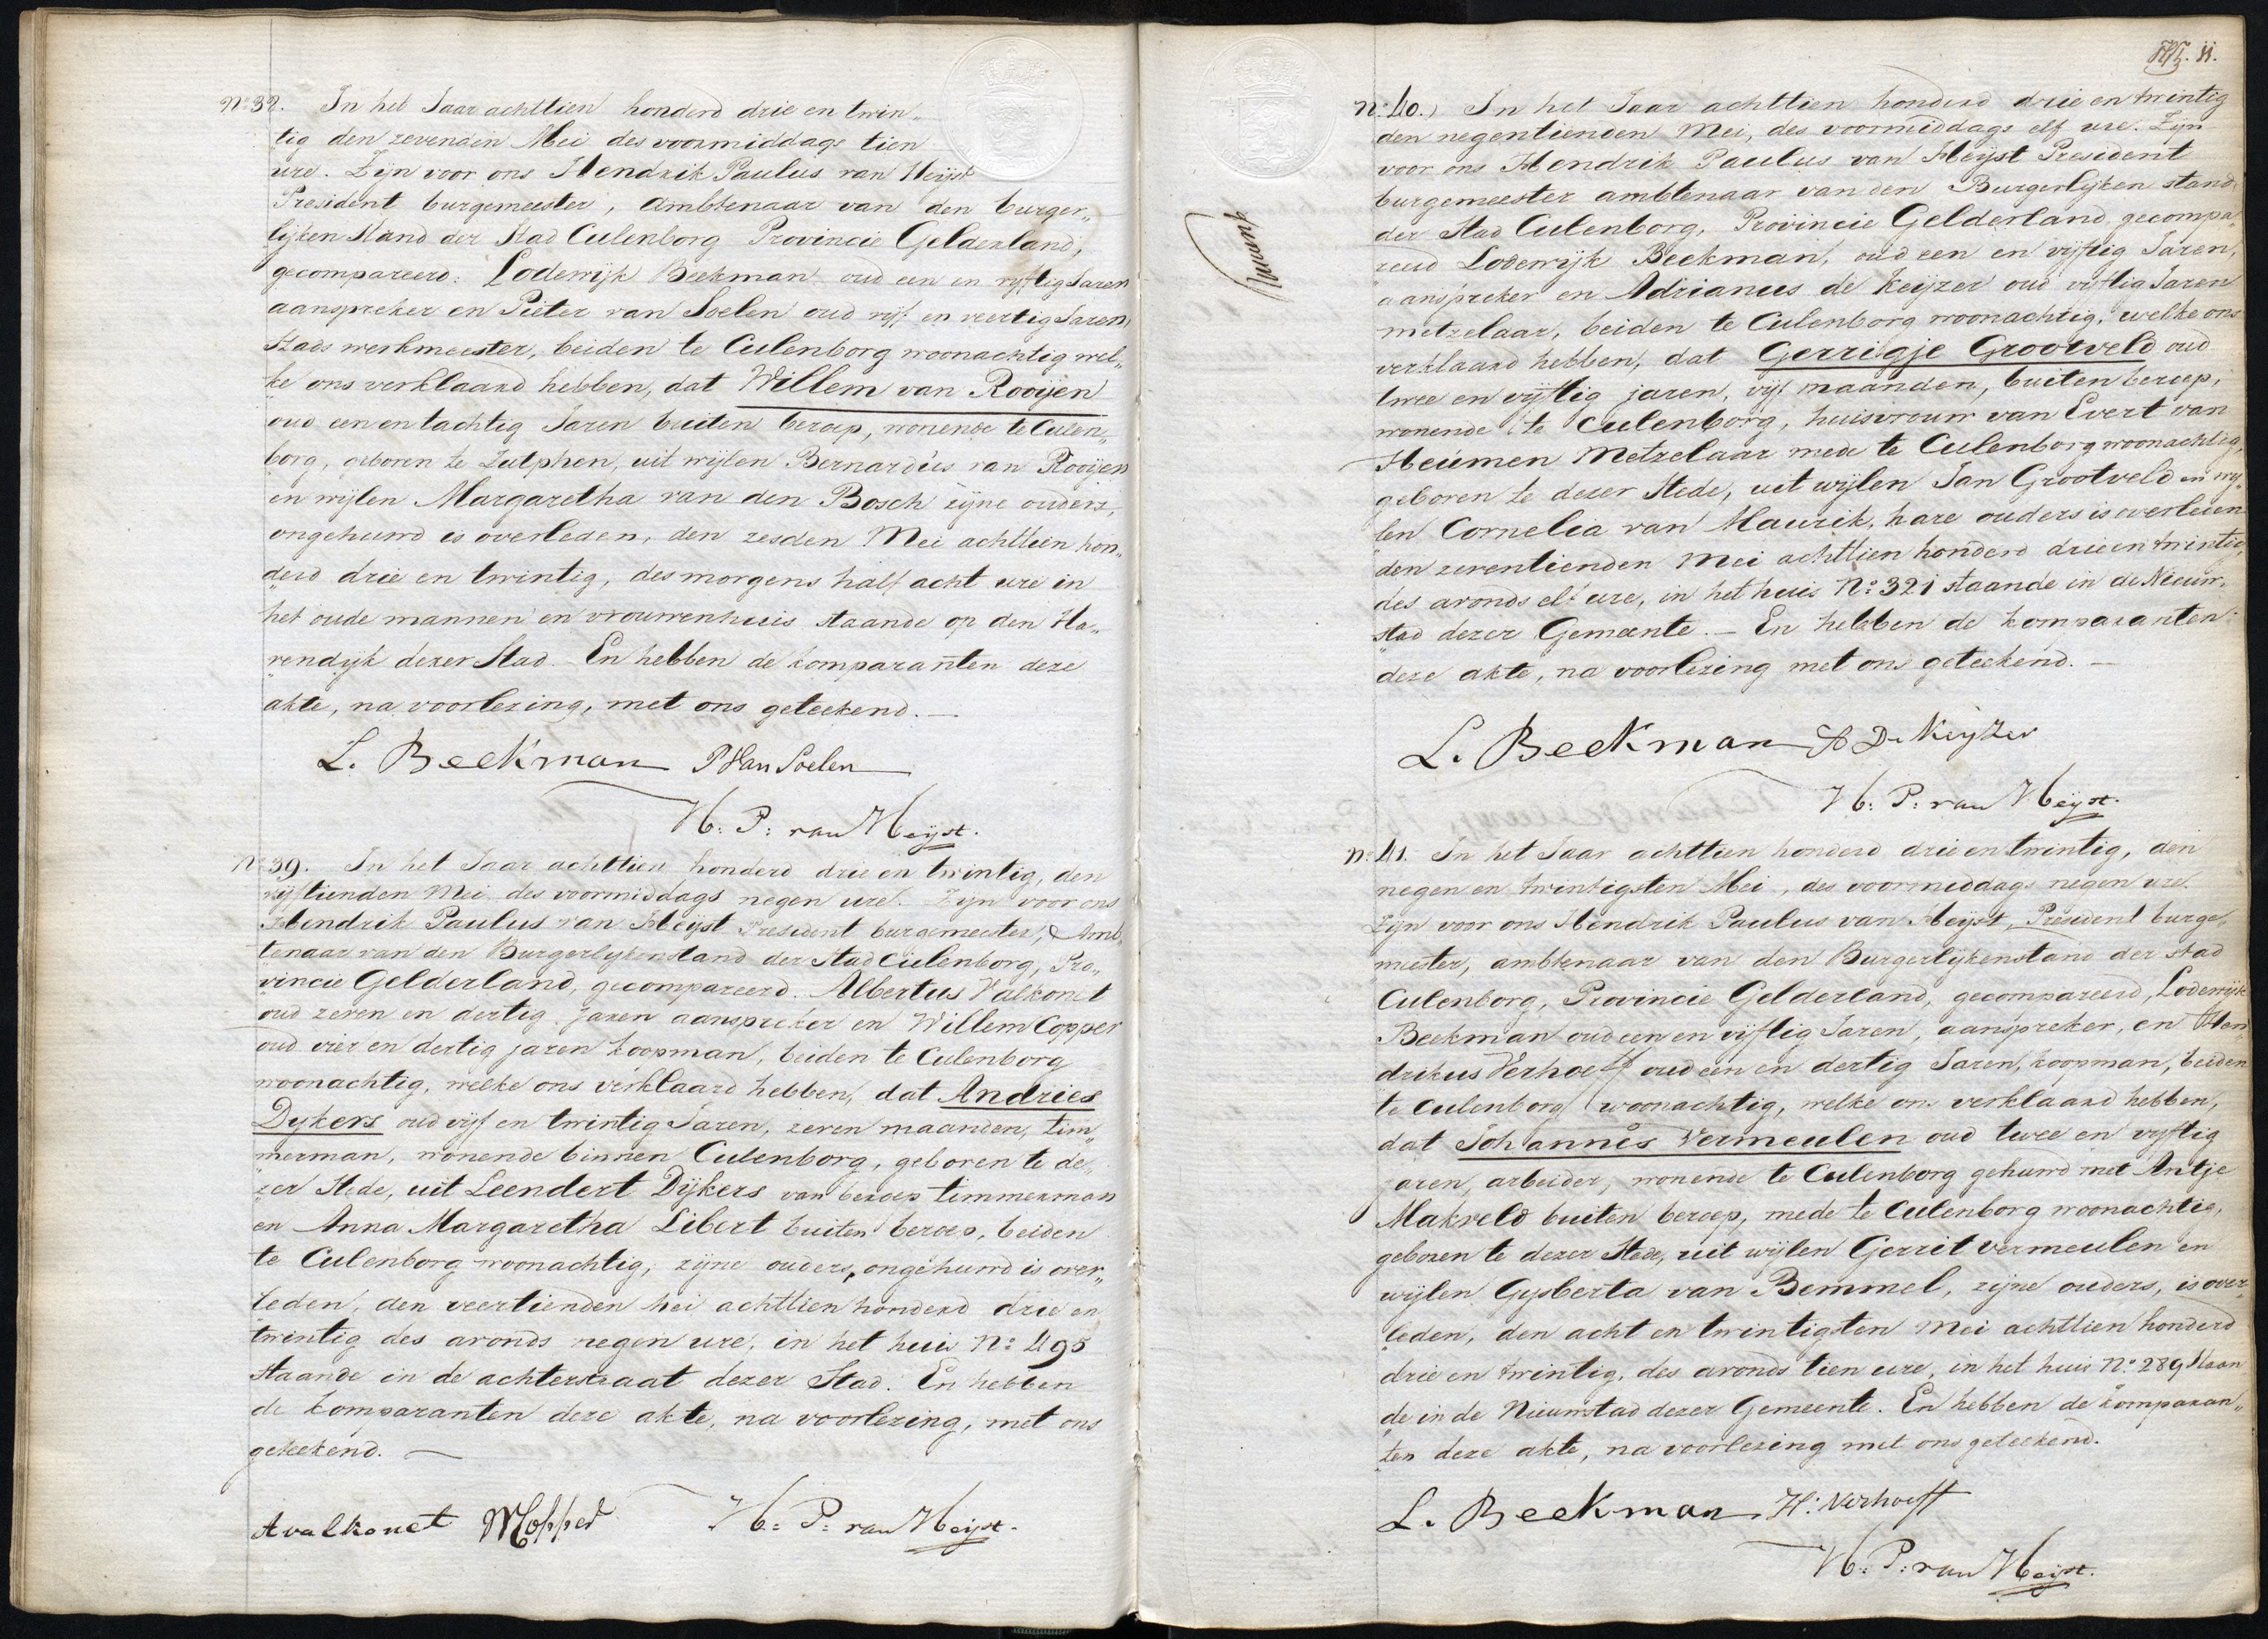 No 38. In het Jaar achttien honderd drie en twin„
„tig den zevenden Mei des voormiddags tien
ure. Zijn voor ons Hendrik Paulus van Heijst
President burgemeester, Ambtenaar van den burger„
„lijken Stand der Stad Culenborg Provincie Gelderland,
gecompareerd: Lodewijk Beekman oud een en vijftig Jaren
aanspreker en Pieter van Soelen oud vijf en veertig Jaren,
Stads werkmeester, beiden te Culenborg woonachtig wel„
„ke ons verklaard hebben, dat Willem van Rooijen
oud een en tachtig Jaren buiten beroep, wonende te Culen„
borg, geboren te Zutphen, uit wijlen Bernardus van Rooijen
en wijlen Margaretha van den Bosch zijne ouders,
ongehuwd is overleden, den zesden Mei achttien hon„
„derd drie en twintig, des morgens half acht ure in
het oude mannen en vrouwenhuis staande op den Ha„
„vendijk dezer Stad. En hebben de komparanten deze
akte, na voorlezing, met ons geteekend. —
L. Beekman P Van Soelen
H: P: van Heijst.
No 39. In het Jaar achttien honderd drie en twintig, den
vijftienden Mei des voormiddags negen ure. Zijn voor ons
Hendrik Paulus van Heijst President burgemeester, Amb„
tenaar van den Burgerlijkenstand der Stad Culenborg, Pro„
„vincie Gelderland, gecompareerd. Albertus Valkonet
oud zeven en dertig jaren aanspreker en Willem Copper
oud vier en dertig jaren koopman, beiden te Culenborg
woonachtig, welke ons verklaard hebben, dat Andries
Dijkers oud vijf en twintig Jaren, zeven maanden, tim„
„merman, wonende binnen Culenborg, geboren te de„
„zer Stede, uit Leendert Dijkers van beroep timmerman
en Anna Margaretha Libert buiten beroep, beiden
te Culenborg woonachtig, zijne ouders, ongehuwd is over„
„leden, den veertienden Mei achttien honderd drie en
twintig des avonds negen ure, in het huis No 495
staande in de achterstraat dezer Stad. En hebben
de komparanten deze akte, na voorlezing, met ons
geteekend. —
A valkonet WCopper H: P: van Heijst.
11.
No 40. In het Jaar achttien honderd drie en twintig
den negentienden Mei, des voormiddags elf ure. Zijn
voor ons Hendrik Paulus van Heijst President
burgemeester ambtenaar van den Burgerlijken stand
der Stad Culenborg, Provincie Gelderland gecompa„
„reerd Lodewijk Beekman, oud een en vijftig Jaren,
aanspreker en Adrianus de Keijzer oud vijftig Jaren
metzelaar, beiden te Culenborg woonachtig, welke ons
verklaard hebben, dat Gerrigje Grootveld oud
twee en vijftig jaren, vijf maanden, buiten beroep,
wonende te Culenborg, huisvrouw van Evert van
Heumen Metzelaar mede te Culenborg woonachtig,
geboren te dezer Stede, uit wijlen Jan Grootveld en wij„
„len Cornelia van Maurik, hare ouders is overleden
den zeventienden Mei achttien honderd drie en twintig,
des avonds elf ure, in het huis No 321 staande in de Nieuw„
„stad dezer Gemeente. — En hebben de komparanten
deze akte, na voorlezing met ons geteekend. —
L. Beekman A De Keijzer
H: P: van Heijst.
No 41. In het Jaar achttien honderd drie en twintig, den
negen en twintigsten Mei, des voormiddags negen ure.
Zijn voor ons Hendrik Paulus van Heijst, President burge„
meester, ambtenaar van den Burgerlijkenstand der stad
Culenborg, Provincie Gelderland, gecompareerd, Lodewijk
Beekman oud een en vijftig Jaren, aanspreker, en Hen„
drikus Verhoeff oud een en dertig Jaren, koopman, beiden
te Culenborg woonachtig, welke ons verklaard hebben,
dat Johannes Vermeulen oud twee en vijftig
jaren, arbeider, wonende te Culenborg gehuwd met Antje
Makveld buiten beroep, mede te Culenborg woonachtig,
geboren te dezer Stede, uit wijlen Gerrit Vermeulen en
wijlen Gijsberta van Bemmel, zijne ouders, is over„
„leden, den acht en twintigsten Mei achttien honderd
drie en twintig, des avonds tien ure, in het huis No 289 staan
„de in de Nieuwstad dezer Gemeente. En hebben de komparan„
„ten deze akte, na voorlezing met ons geteekend.
L. Beekman H: Verhoeff
H: P: van Heijst.